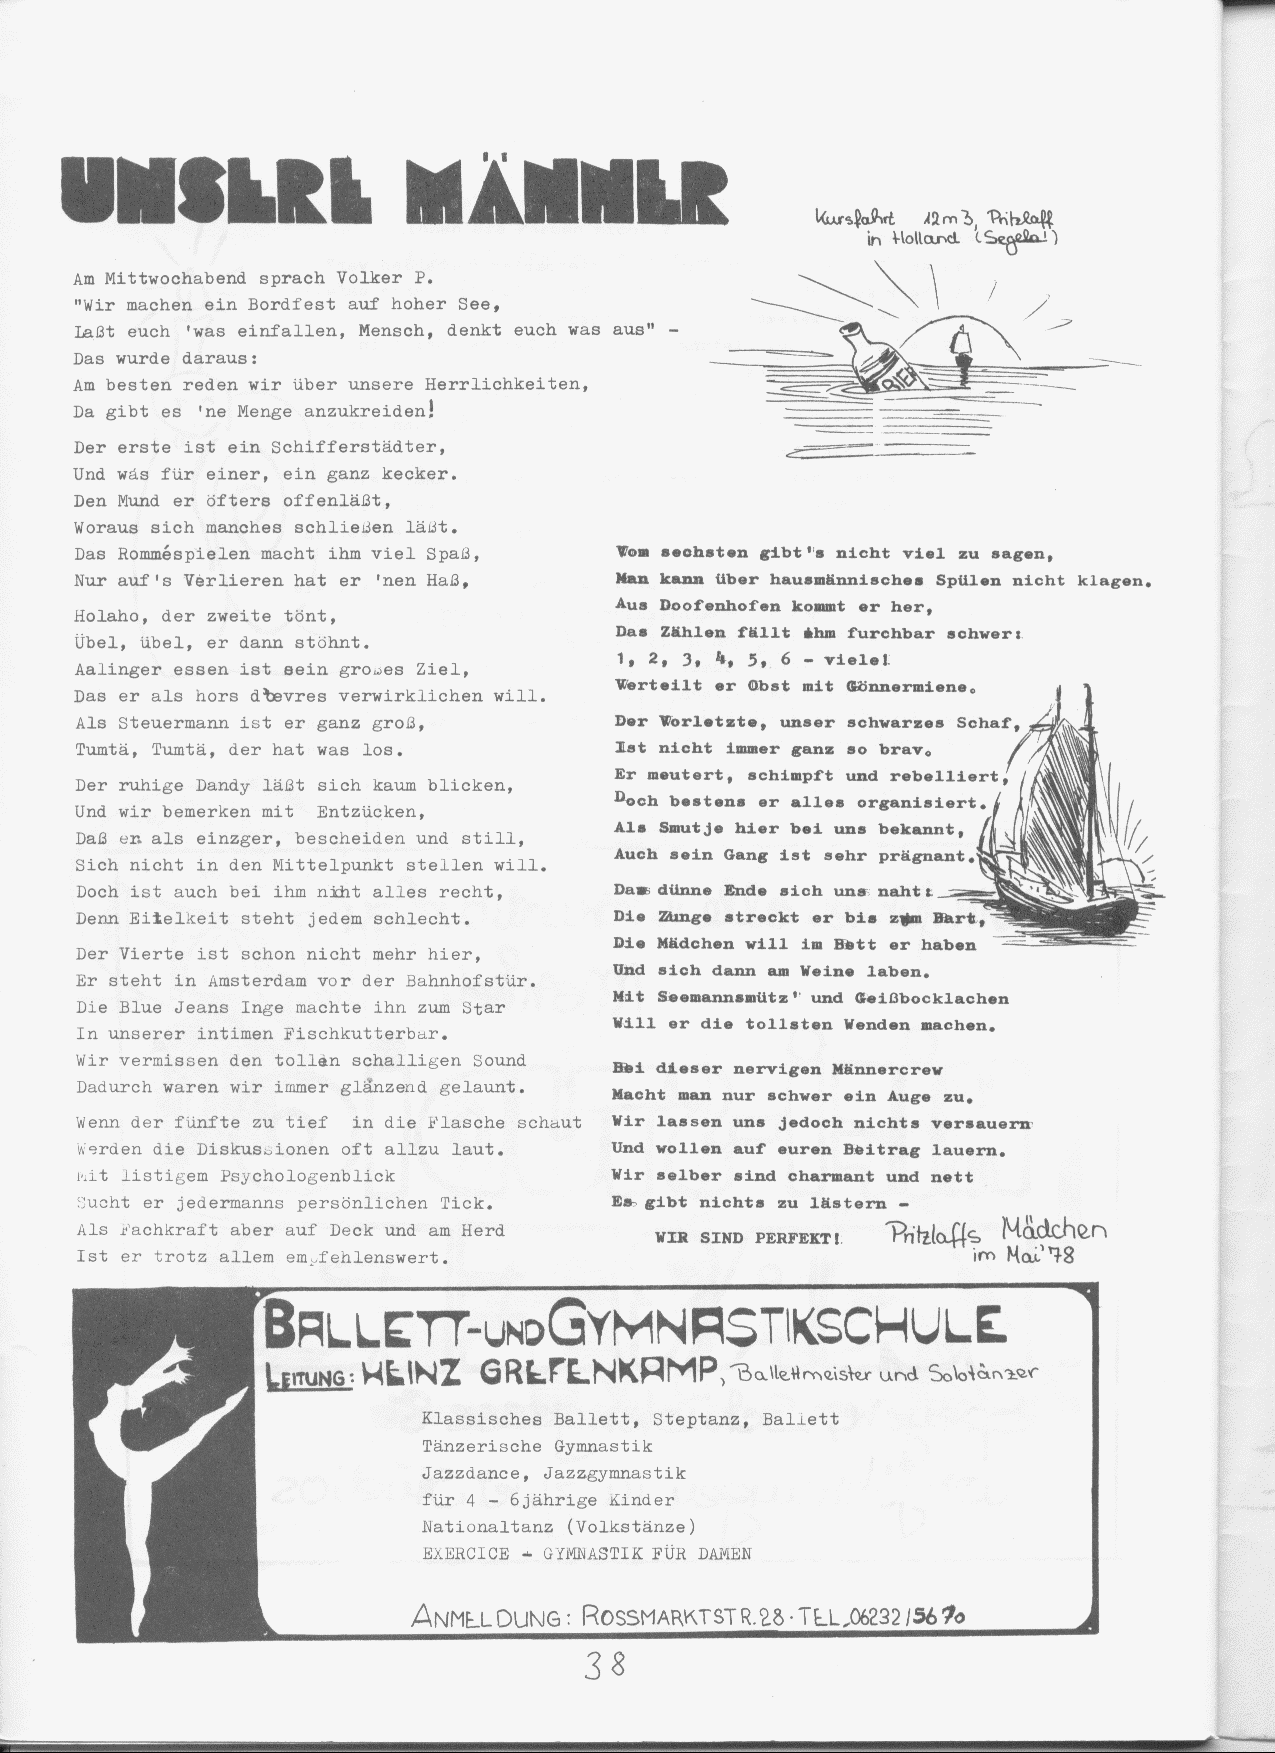 UNSERE MÄNNER
Kursfahrt 12m3, Pritzlaff
in Holland (Segeln!)
Am Mittwochabend sprach Volker P.
"Wir machen ein Bordfest auf hoher See,
Laßt euch 'was einfallen, Mensch, denkt euch was aus" -
Das wurde daraus:
Am besten reden wir über unsere Herrlichkeiten,
Da gibt es 'ne Menge anzukreiden!
BIER
Der erste ist ein Schifferstädter,
Und was für einer, ein ganz kecker.
Den Mund er öfters offenläßt,
Woraus sich manches schließen läßt.
Das Romméspielen macht ihm viel Spaß,
Nur auf's Verlieren hat er 'nen Haß,
Holaho, der zweite tönt,
Übel, übel, er dann stöhnt.
Aalinger essen ist sein großes Ziel,
Das er als hors d'œvres verwirklichen will.
Als Steuermann ist er ganz groß,
Tumtä, Tumtä, der hat was los.
Der ruhige Dandy läßt sich kaum blicken,
Und wir bemerken mit Entzücken,
Daß er als einzger, bescheiden und still,
Sich nicht in den Mittelpunkt stellen will.
Doch ist auch bei ihm nicht alles recht,
Denn Eitelkeit steht jedem schlecht.
Der Vierte ist schon nicht mehr hier,
Er steht in Amsterdam vor der Bahnhofstür.
Die Blue Jeans Inge machte ihn zum Star
In unserer intimen Fischkutterbar.
Wir vermissen den tollen schalligen Sound
Dadurch waren wir immer glänzend gelaunt.
Wenn der fünfte zu tief in die Flasche schaut
Werden die Diskussionen oft allzu laut.
Mit listigem Psychologenblick
Sucht er jedermanns persönlichen Tick.
Als Fachkraft aber auf Deck und am Herd
Ist er trotz allem empfehlenswert.
Vom sechsten gibt's nicht viel zu sagen,
Man kann über hausmännisches Spülen nicht klagen.
Aus Doofenhofen kommt er her,
Das Zählen fällt ihm furchbar schwer:
1, 2, 3, 4, 5, 6 - viele!
Verteilt er Obst mit Gönnermiene.
Der Vorletzte, unser schwarzes Schaf,
Ist nicht immer ganz so brav.
Er meutert, schimpft und rebelliert,
Doch bestens er alles organisiert.
Als Smutje hier bei uns bekannt,
Auch sein Gang ist sehr prägnant.
Das dünne Ende sich uns naht:
Die Zunge streckt er bis zum Bart,
Die Mädchen will im Bett er haben
Und sich dann am Weine laben.
Mit Seemannsmütz' und Geißbocklachen
Will er die tollsten Wenden machen.
Bei dieser nervigen Männercrew
Macht man nur schwer ein Auge zu.
Wir lassen uns jedoch nichts versauern
Und wollen auf euren Beitrag lauern.
Wir selber sind charmant und nett
Es gibt nichts zu lästern -
WIR SIND PERFEKT!
Pritzlaffs Mädchen
im Mai '78
BALLETT-UND GYMNASTIKSCHULE
LEITUNG: HEINZ GREFENKAMP, Ballettmeister und Solotänzer
Klassisches Ballett, Steptanz, Ballett
Tänzerische Gymnastik
Jazzdance, Jazzgymnastik
für 4 - 6jährige Kinder
Nationaltanz (Volkstänze)
EXERCICE - GYMNASTIK FÜR DAMEN
ANMELDUNG: ROSSMARKTSTR.28 · TEL. 06232/5670
38